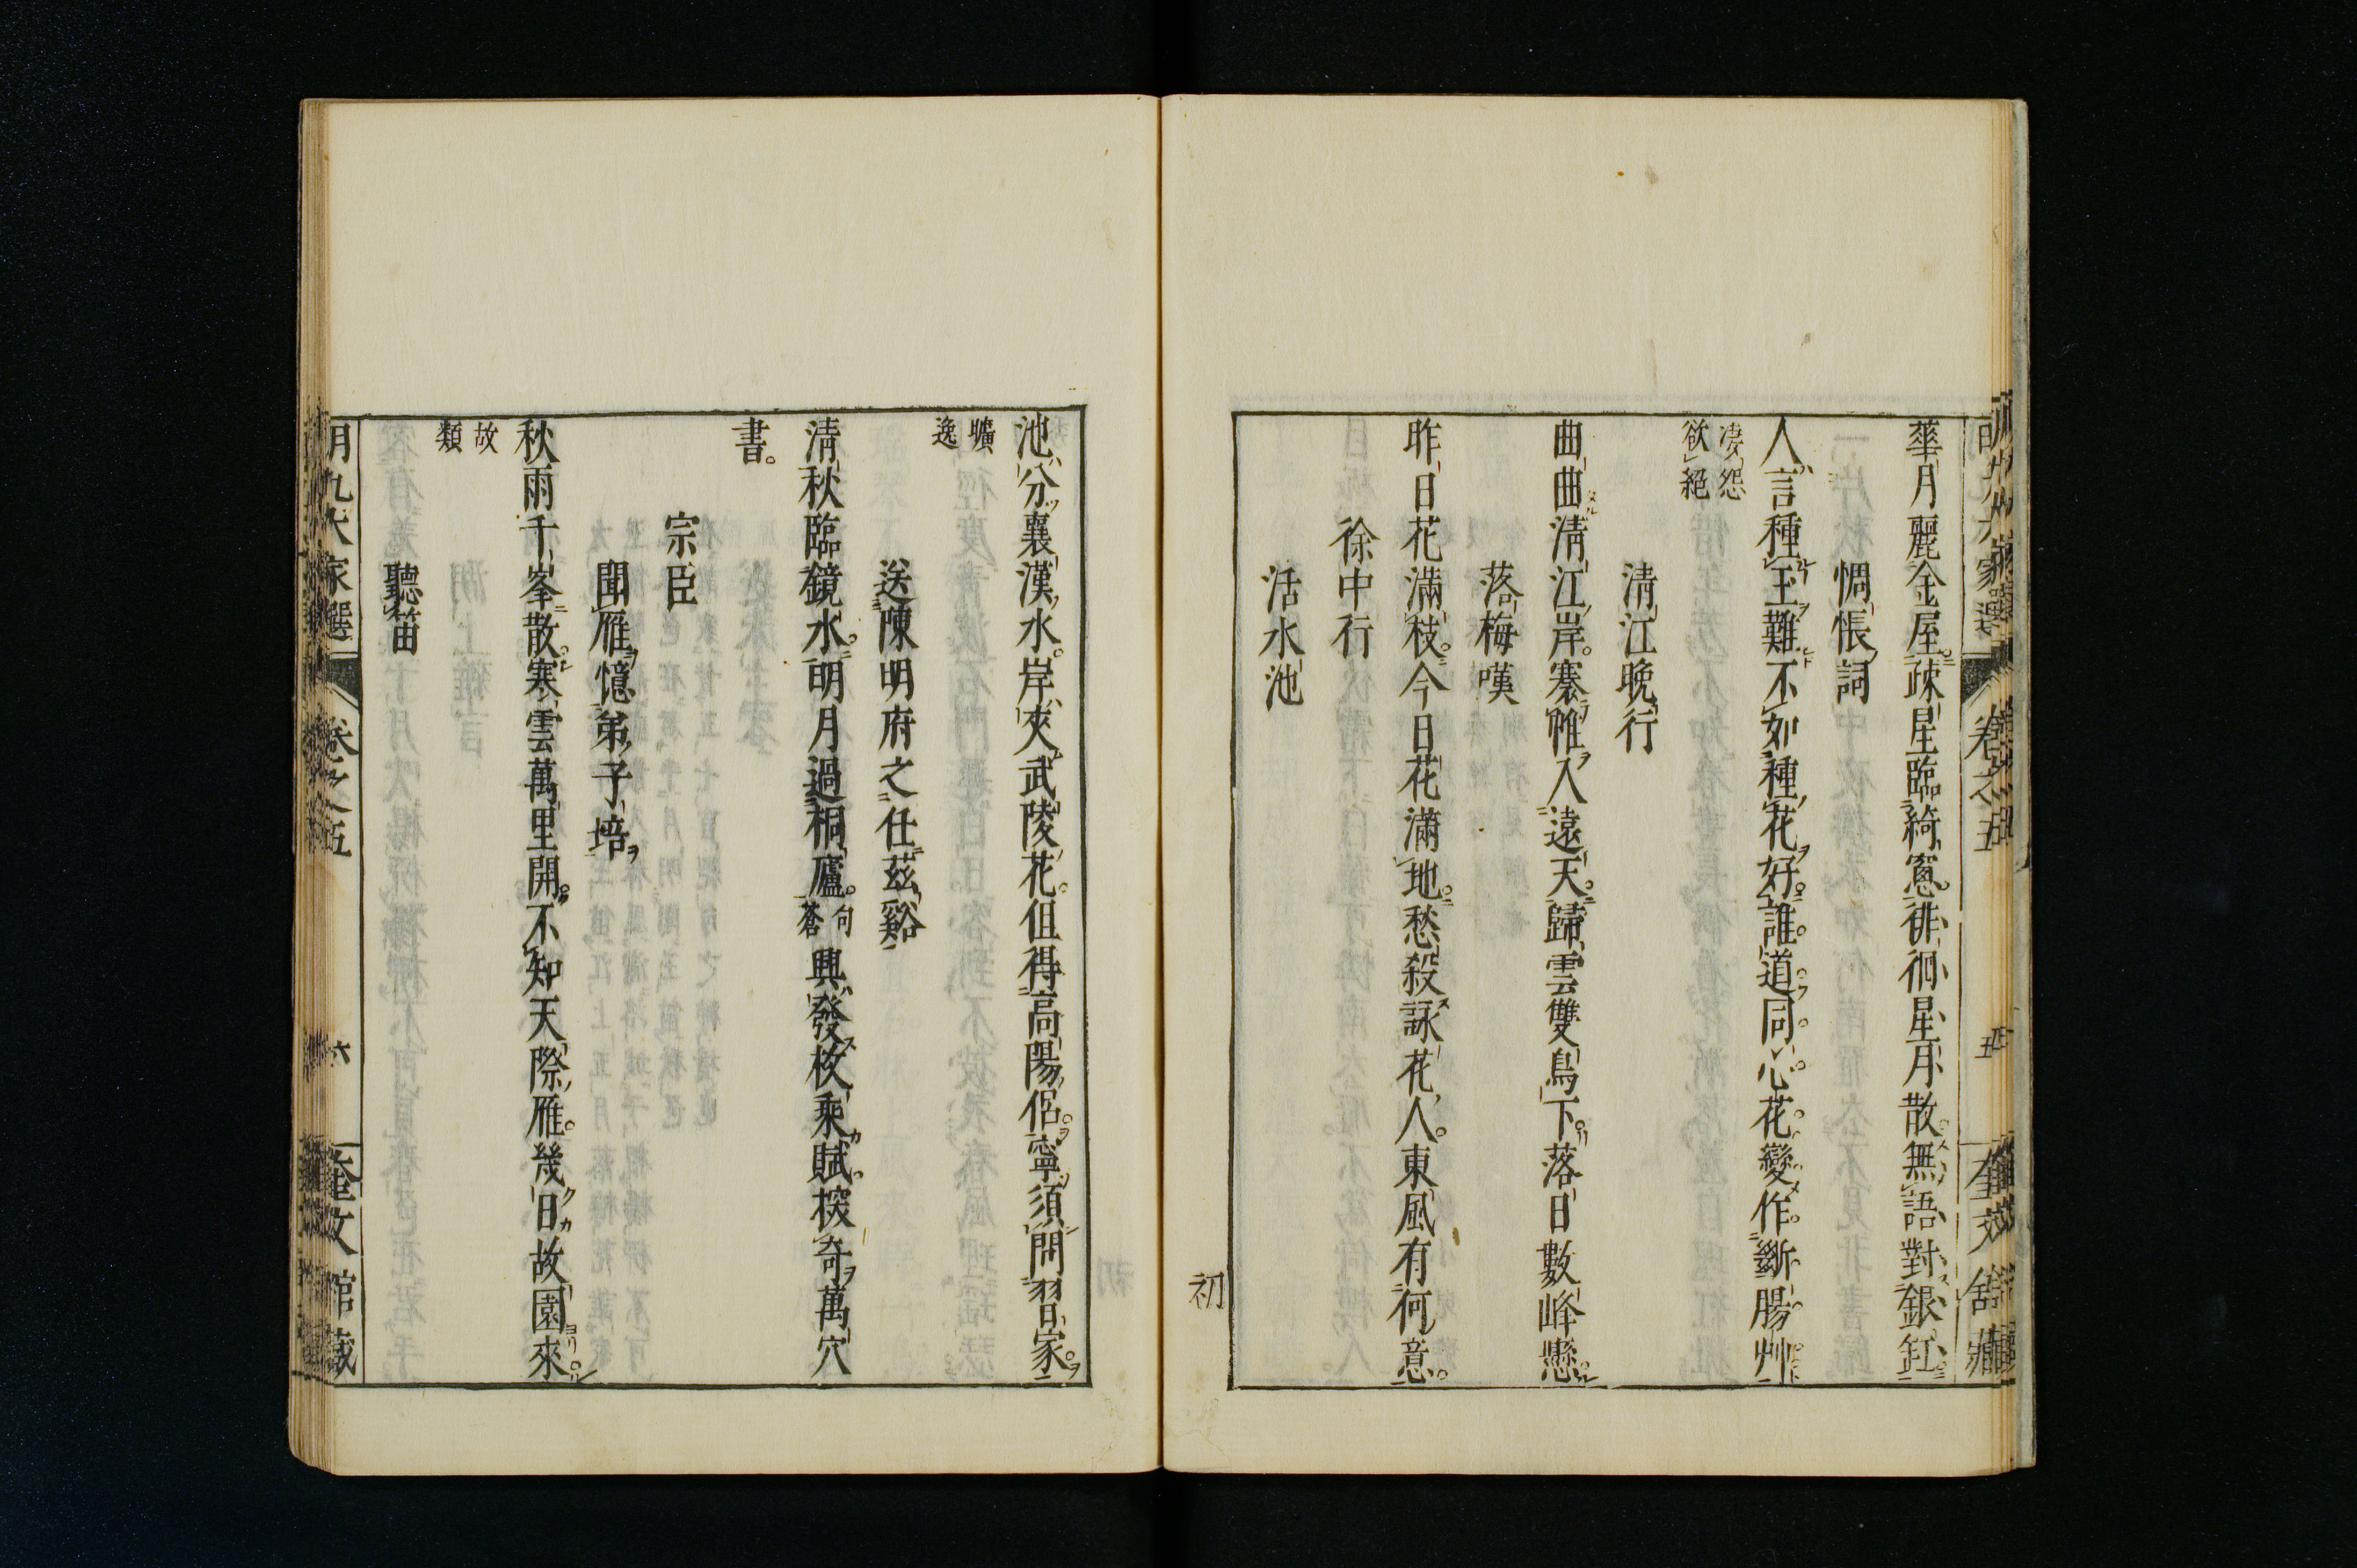 華月麗金屋疎星臨綺窓徘徊星月散無語對銀缸
惆悵詞
人言種玉難不如種花好誰道同心花變作斷腸艸
凄怨
欲絕
清江晚行
曲曲清江岸褰帷入遠天歸雲雙鳥下落日數峰懸
落梅嘆
昨日花滿枝今日花滿地愁殺詠花人東風有何意
徐中行
活水池
初
池分襄漢水岸夾武陵花但得高陽侶寧須問習家
曠
逸
送陳明府之任茲谿
清秋臨鏡水明月過桐廬句蒼興發枚乘賦探奇萬穴
書
宗臣
聞雁憶弟子培
秋雨千峯散寒雲萬里開不知天際雁幾日故園來
故
類
聽笛
明九大家選
卷之五
六
奎文館藏